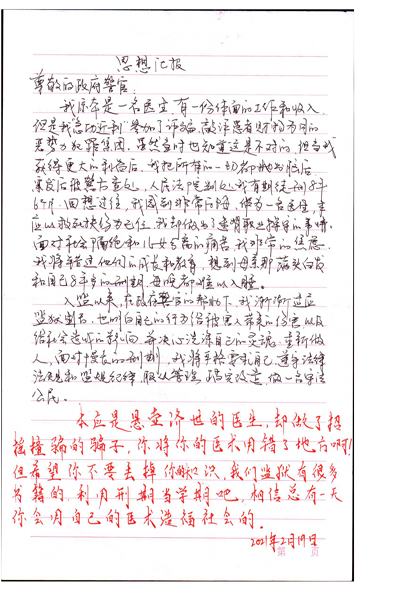 思想汇报
尊敬的政府警官:
我原本是一名医生,有一份体面的工作和收入,
但是我急功近利,参加了诈骗、敲诈患者财物为目的
恶势力犯罪集团,虽然当时也知道这是不对的,但当我
获得更大的利益后,我把所有的一切都抛在脑后,
案发后被警方查处,人民法院判处我有期徒刑8年
6个月。回想过往,我感到非常后悔,作为一名医生,本
应以救死扶伤为己任,我却做出了违背职业操守的事情
面对和亲人隔绝和儿女分离的痛苦,我非常的
我将错过他们的成长和教育,想到母亲那满头白发
和自己8年多的刑期,每晚都难以入睡。
入监以来,在政府警官的帮助下,我渐渐适应
监狱生活,也明白自己的行为给被害人带来的伤害以及
给社会造成的影响,我决心洗涤自己的灵魂,重新做
人,面对漫长的刑期,我将严格要求自己,遵守法律
法规和监规纪律,服从管理,踏实改造,做一名守法
公民。
本应是悬壶济世的医生,却做了招
摇撞骗的骗子,你将你的医术用错了地方啊!
但希望你不要丢掉你的知识,我们监狱有很多
书籍的,利用刑期当学期吧,相信总有一天
你会用自己的医术造福社会的。
2021年2月19日
第 页